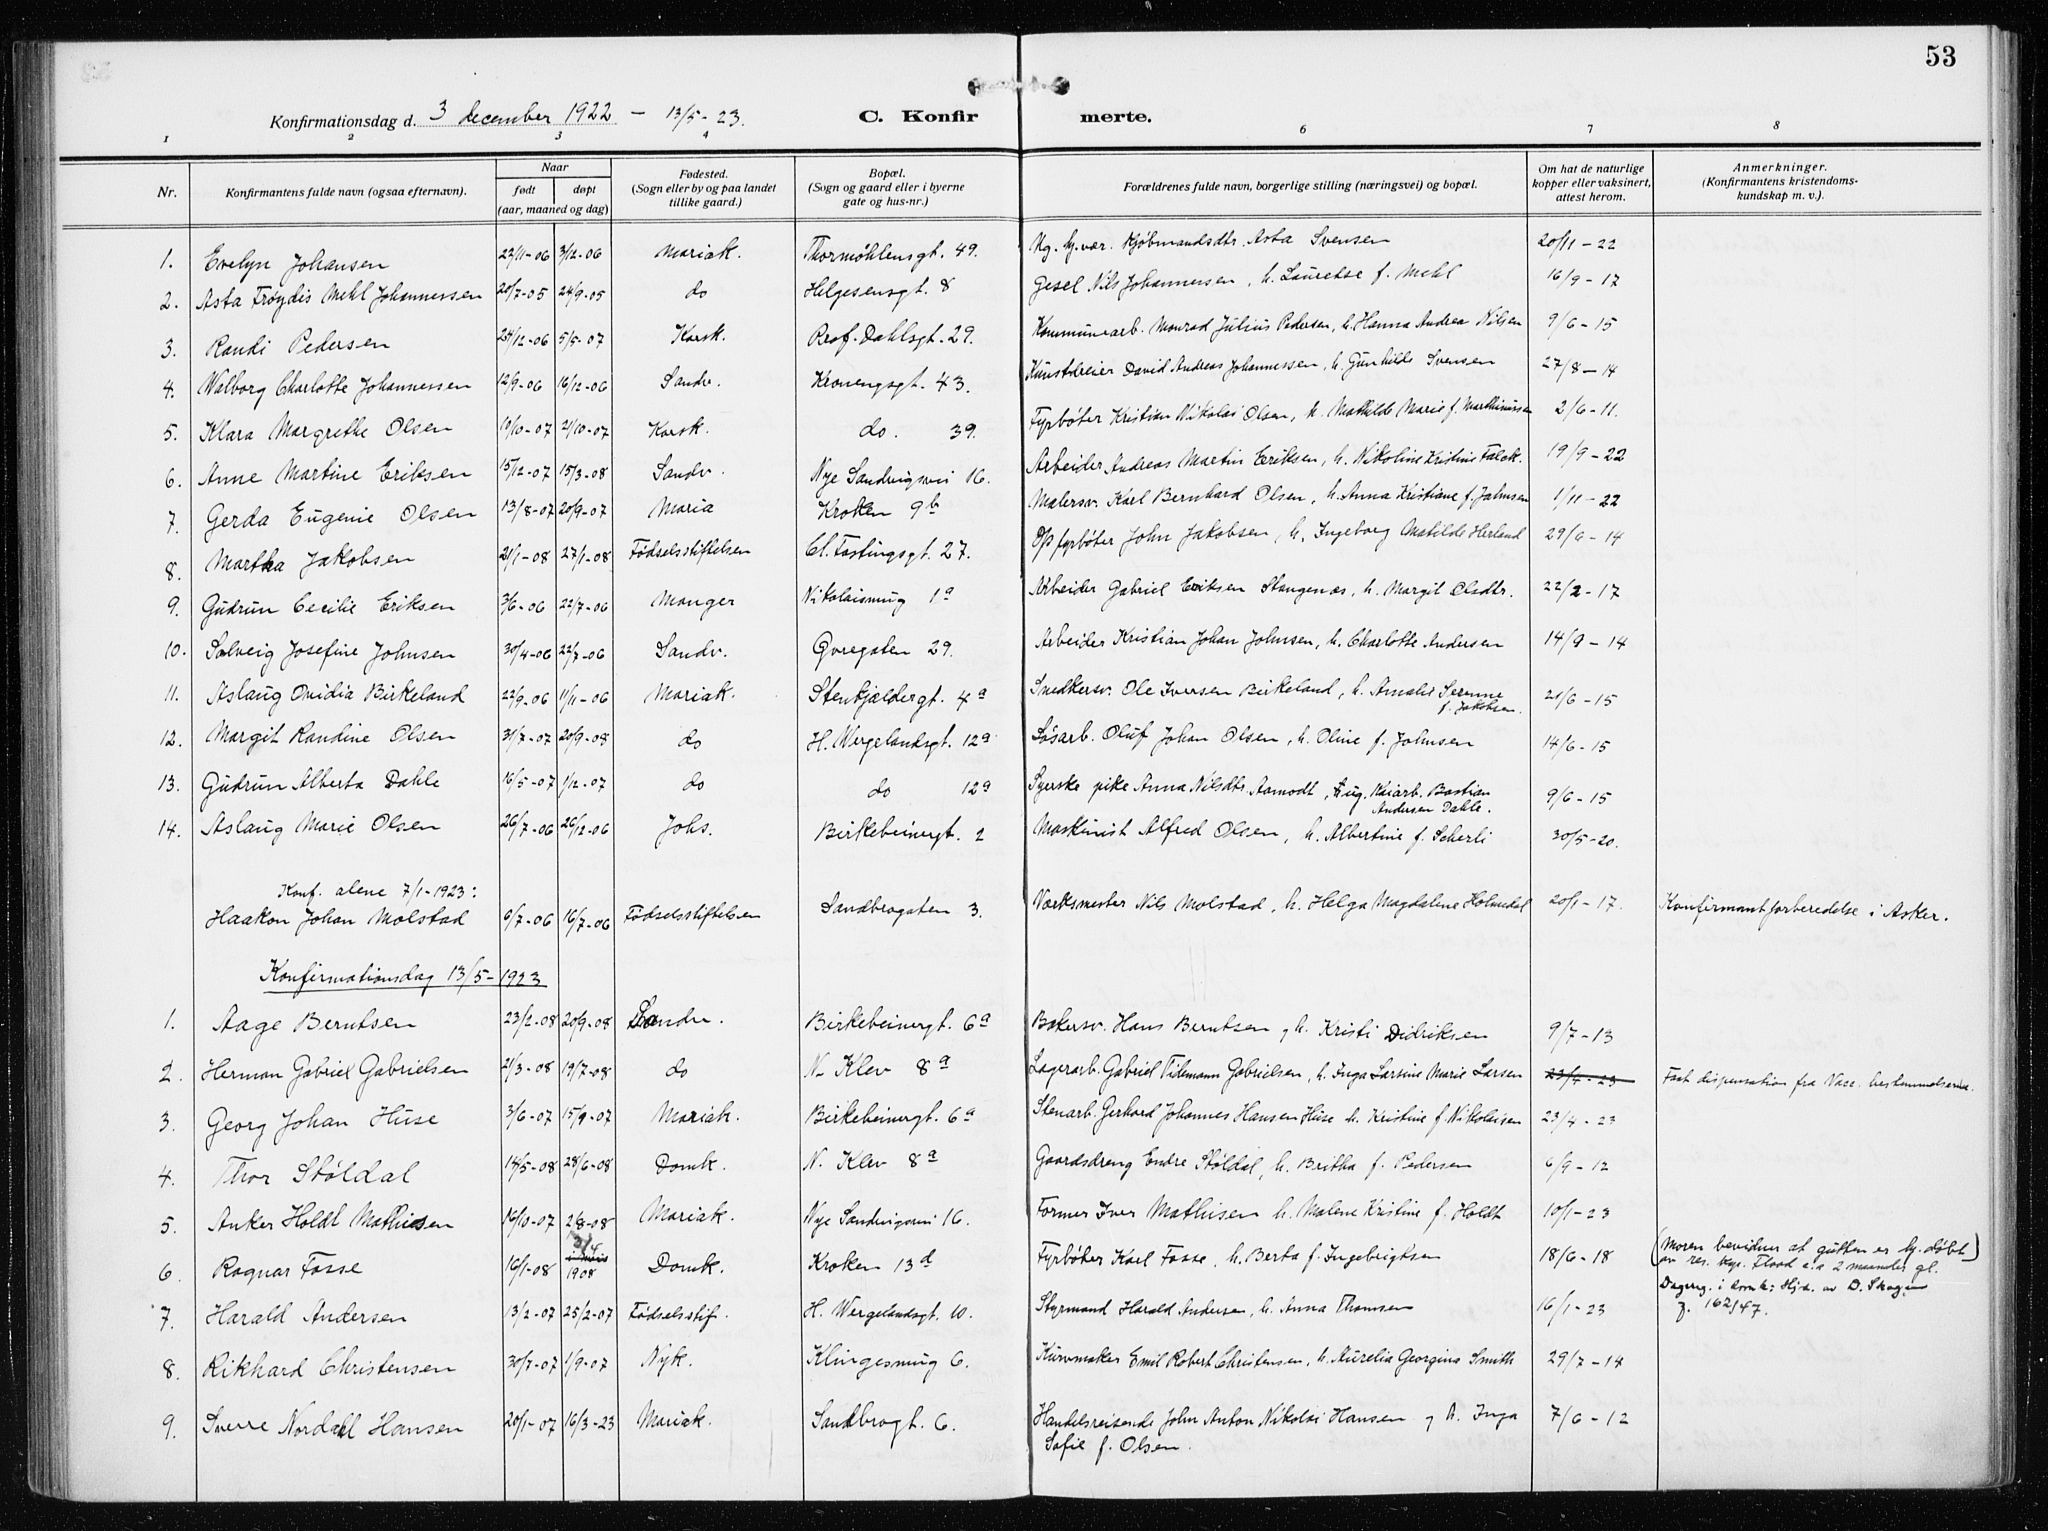 53
Konfirmationsdag d. 3 december 1922 – 13/5-23. C. Konfirmerte.
1 2 3 4 6 7 8
Nr. Konfirmantens fulde navn (ogsaa efternavn). Naar født døpt (aar, maaned og dag) Fødested. (Sogn eller by og paa landet tillike gaard.) Bopæl. (Sogn og gaard eller i byerne gate og hus-nr.) Forældrenes fulde navn, borgerlige stilling (næringsvei) og bopæl. Om hat de naturlige kopper eller vaksinert, attest herom. Anmerkninger. (Konfirmantens kristendomskundskap m. v.).
1. Evelyn Johansen 23/11-06 3/12-06 Mariak. Thormøhlensgt. 49. Ug. h.vær. Kjøbmandsdtr. Asta Svensen 20/11-22
2. Asta Frøydis Mehl Johannessen 20/7-05 24/9-05 do Helgesensgt. 8 Gesel Nils Johannessen, h. Lauretse f. Mehl 16/9-17
3. Randi Pedersen 24/12-06 5/5-07 Korsk. Prof. Dahlsgt. 29. Kommunearb. Monrad Julius Pedersen, h. Hanna Andrea Nilsen 9/6-15
4. Walborg Charlotte Johannessen 12/9-06 16/12-06 Sandv. Kronengsgt. 43. Kunstdreier David Andreas Johannessen, h. Gunhilde Svensen 27/8-14
5. Klara Margrethe Olsen 10/10-07 21/10-07 Korsk. do. 39. Fyrbøter Kristian Nikolai Olsen, h. Mathilde Marie f. Marthinussen 2/6-11.
6. Anne Martine Eriksen 15/12-07 15/3-08 Sandv. Nye Sandvigsvei 16. Arbeider Andreas Martin Eriksen, h. Nikoline Kristine Falck. 19/9-22
7. Gerda Eugenie Olsen 13/8-07 20/9-07 Maria Kroken 9b Malersv. Karl Bernhard Olsen, h. Anna Kristiane f. Jahnsen 1/11-22
8. Martha Jakobsen 21/1-08 27/1-08 Fødselsstiftelsen Cl. Fastingsgt. 27. O/s fyrbøter John Jakobsen, h. Ingeborg Matilde Herland 29/6-14
9. Gudrun Cecilie Eriksen 3/6-06 22/7-06 Manger Nikolaismug 1a Arbeider Gabriel Eriksen Stangenæs, h. Margit Olsdtr. 22/2-17
10. Solveig Josefine Johnsen 30/4-06 22/7-06 Sandv. Øvregaten 29. Arbeider Kristian Johan Johnsen, h. Charlotte Andersen 14/9-14
11. Aslaug Ovidia Birkeland 22/9-06 11/11-06 Mariak. Stenkjældergt. 4a Snedkersv. Ole Iversen Birkeland, h. Amalie Serenne f. Jakobsen. 21/6-15
12. Margit Randine Olsen 31/7-07 20/9-08 do H. Wergelandsgt. 12a Løsarb. Oluf Johan Olsen, h. Oline f. Johnsen 14/6-15
13. Gudrun Alberta Dahle 16/5-07 1/12-07 do do 12a Syerske pike Anna Nilsdtr. Aamodt, & ug. Kaiarb. Bastian Andersen Dahle. 9/6-15
14. Aslaug Marie Olsen 26/7-06 26/12-06 Johs. Birkebeinergt. 2 Maskinist Alfred Olsen, h. Albertine f. Scherli 30/5-20.
Konf. alene 7/1-1923:
Haakon Johan Molstad 6/7-06 16/7-06 Fødselsstiftelsen Sandbrogaten 3. Værksmester Nils Molstad, h. Helga Magdalene Holmdal 20/1-17. Konfirmantforberedelse i Asker.
Konfirmationsdag 13/5-1923
1. Aage Berntsen 23/2-08 20/9-08 Sandv. Birkebeinergt. 6a Bakersv. Hans Berntsen og h. Kristi Didriksen 9/7-13
2. Herman Gabriel Gabrielsen 21/3-08 19/7-08 do N. Klev 8a Lagerarb. Gabriel Tilemann Gabrielsen, h. Inga Larsine Marie Larsen 23/4-23 Faat dispensation fra Vacc. bestemmelserne.
3. Georg Johan Huse 3/6-07 15/9-07 Mariak. Birkebeinergt. 6a Stenarb. Gerhard Johannes Hansen Huse h. Kristine f. Nikolaisen 23/4-23
4. Thor Støldal 14/5-08 28/6-08 Domk. N. Klev 8a Gaardsdreng Endre Støldal, h. Britha f. Pedersen 6/9-12
5. Anker Holdt Mathisen 16/10-07 2/8-08 Mariak. Nye Sandvigsvei 16. Former Iver Mathisen h. Malene Kristine f. Holdt 10/1-23
6. Ragnar Fosse 16/1-08 1908 Domk. Kroken 13d Fyrbøter Karl Fosse, h. Berta f. Ingebrigtsen 18/6-18 (Moren bevidner at gutten er hj.døbt av res. kap. Flood ca 2 maaneder gl.)
7. Harald Andersen 13/2-07 25/2-07 Fødselsstif. H. Wergelandsgt. 10. Styrmand Harald Andersen, h. Anna Thomsen 16/1-23
8. Rikhard Christensen 30/7-07 1/9-07 Nyk. Klingesmug 6. Kurvmaker Emil Robert Christensen, h. Aurelia Georgina Smith 29/7-14
9. Sverre Nordahl Hansen 20/1-07 16/3-23 Mariak. Sandbrogt. 6. Handelsreisende John Anton Nikolai Hansen og h. Inga Sofie f. Olsen. 7/6-12